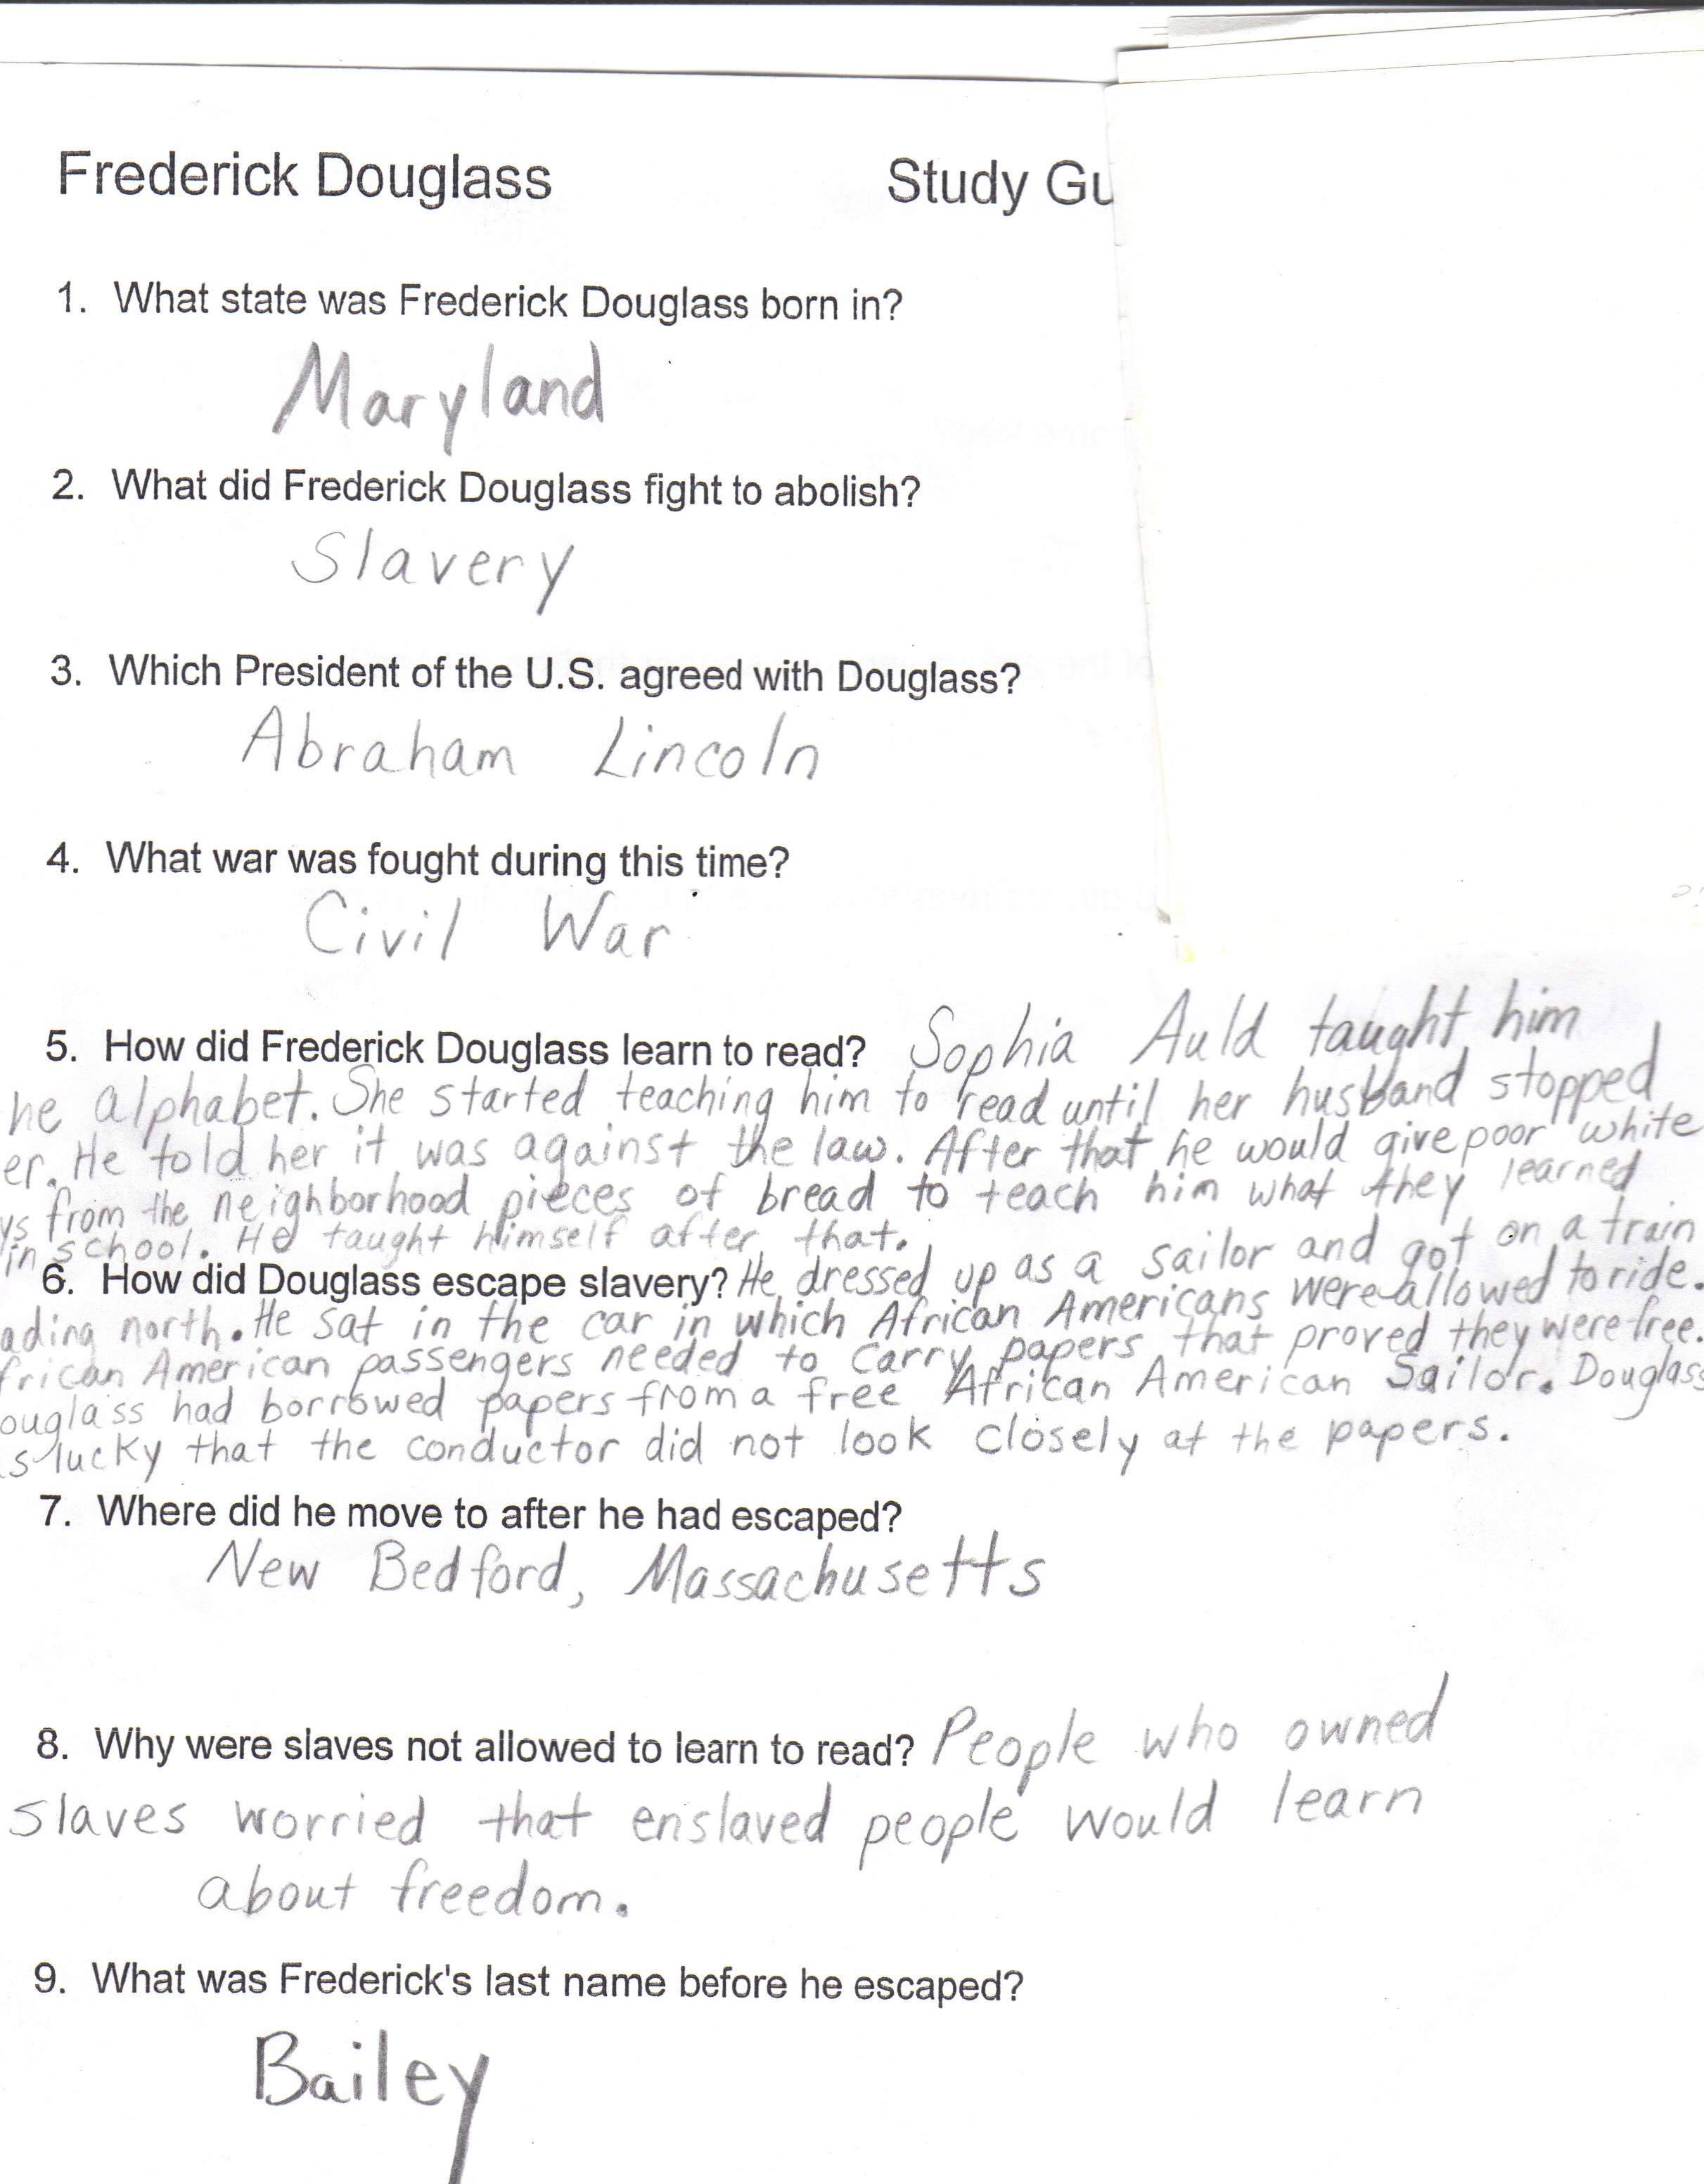 Frederick Douglass Study Gu
1. What state was Frederick Douglass born in?
Maryland
2. What did Frederick Douglass fight to abolish?
Slavery
3. Which President of the U.S. agreed with Douglass?
Abraham Lincoln
4. What war was fought during this time?
Civil War
5. How did Frederick Douglass learn to read? Sophia Auld taught him
he alphabet. She started teaching him to read until her husband stopped
er. He told her it was against the law. After that he would give poor white
ys from the neighborhood pieces of bread to teach him what they learned
in school. He taught himself after that.
6. How did Douglass escape slavery? He dressed up as a sailor and got on a train
ading north. He sat in the car in which African Americans were allowed to ride.
frican American passengers needed to carry papers that proved they were free.
ouglass had borrowed papers from a free African American Sailor. Douglass
s lucky that the conductor did not look closely at the papers.
7. Where did he move to after he had escaped?
New Bedford, Massachusetts
8. Why were slaves not allowed to learn to read? People who owned
slaves worried that enslaved people would learn
about freedom.
9. What was Frederick's last name before he escaped?
Bailey